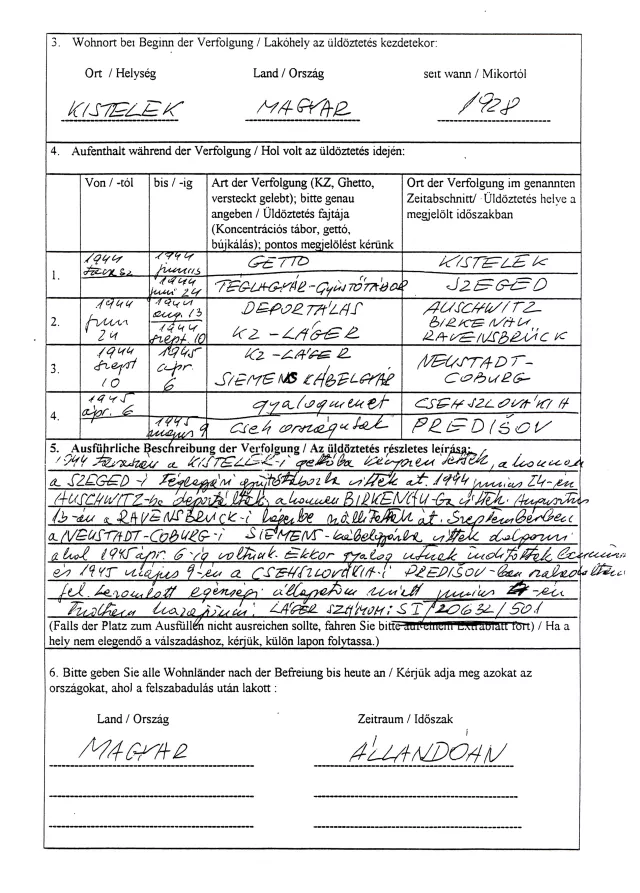 3. Wohnort bei Beginn der Verfolgung / Lakóhely az üldöztetés kezdetekor:
Ort / Helység Land / Ország seit wann / Mikortól
KISTELEK MAGYAR 1928
4. Aufenthalt während der Verfolgung / Hol volt az üldöztetés idején:
Von / -tól bis / -ig Art der Verfolgung (KZ, Ghetto, versteckt gelebt); bitte genau angeben / Üldöztetés fajtája (Koncentrációs tábor, gettó, bújkálás); pontos megjelölést kérünk Ort der Verfolgung im genannten Zeitabschnitt/ Üldöztetés helye a megjelölt időszakban
1. 1944 1944 június GETTO KISTELEK
juni 24 TÉGLAGYÁR-Gyűjtőtábor SZEGED
2. 1944 jun 24 1944 aug. 13 DEPORTÁLÁS AUSCHWITZ BIRKENAU
1944 szept. 10 KZ-LÁGER RAVENSBRÜCK
3. 1944 szept 10 1945 apr. 6 KZ-LÁGER NEUSTADT-
SIEMENS KÁBELGYÁR COBURG
4. 1945 apr. 6 gyalogmenet CSEHSZLOVÁKIA
1945 május 9 Cseh országutak PREDIŠOV
5. Ausführliche Beschreibung der Verfolgung / Az üldöztetés részletes leírása:
1944 a KISTELEK-i gettóba a honnan
a SZEGED-i téglagyári gyűjtőtáborba vittek át. 1944 június 24-én
AUSCHWITZ-ba deportáltak, a honnan BIRKENAU-ba vittek. Augusztus
13-án a RAVENSBRÜCK-i lágerbe szállítottak át. Szeptemberben
a NEUSTADT-COBURG-i SIEMENS-kábelgyárba vittek dolgozni
ahol 1945 apr. 6-ig voltunk. Ekkor gyalog útnak indítottak bennünk
és 1945 május 9-én a CSEHSZLOVÁKIA-i PREDIŠOV-ban
fel. Leromlott egészségi állapotom miatt június -én
tudtam hazajönni. LÁGER SZÁMOM: SI/20632/501
(Falls der Platz zum Ausfüllen nicht ausreichen sollte, fahren Sie bitte auf einem Extrablatt fort) / Ha a
hely nem elegendő a válszadáshoz, kérjük, külön lapon folytassa.)
6. Bitte geben Sie alle Wohnländer nach der Befreiung bis heute an / Kérjük adja meg azokat az
országokat, ahol a felszabadulás után lakott :
Land / Ország Zeitraum / Időszak
MAGYAR ÁLLANDÓAN